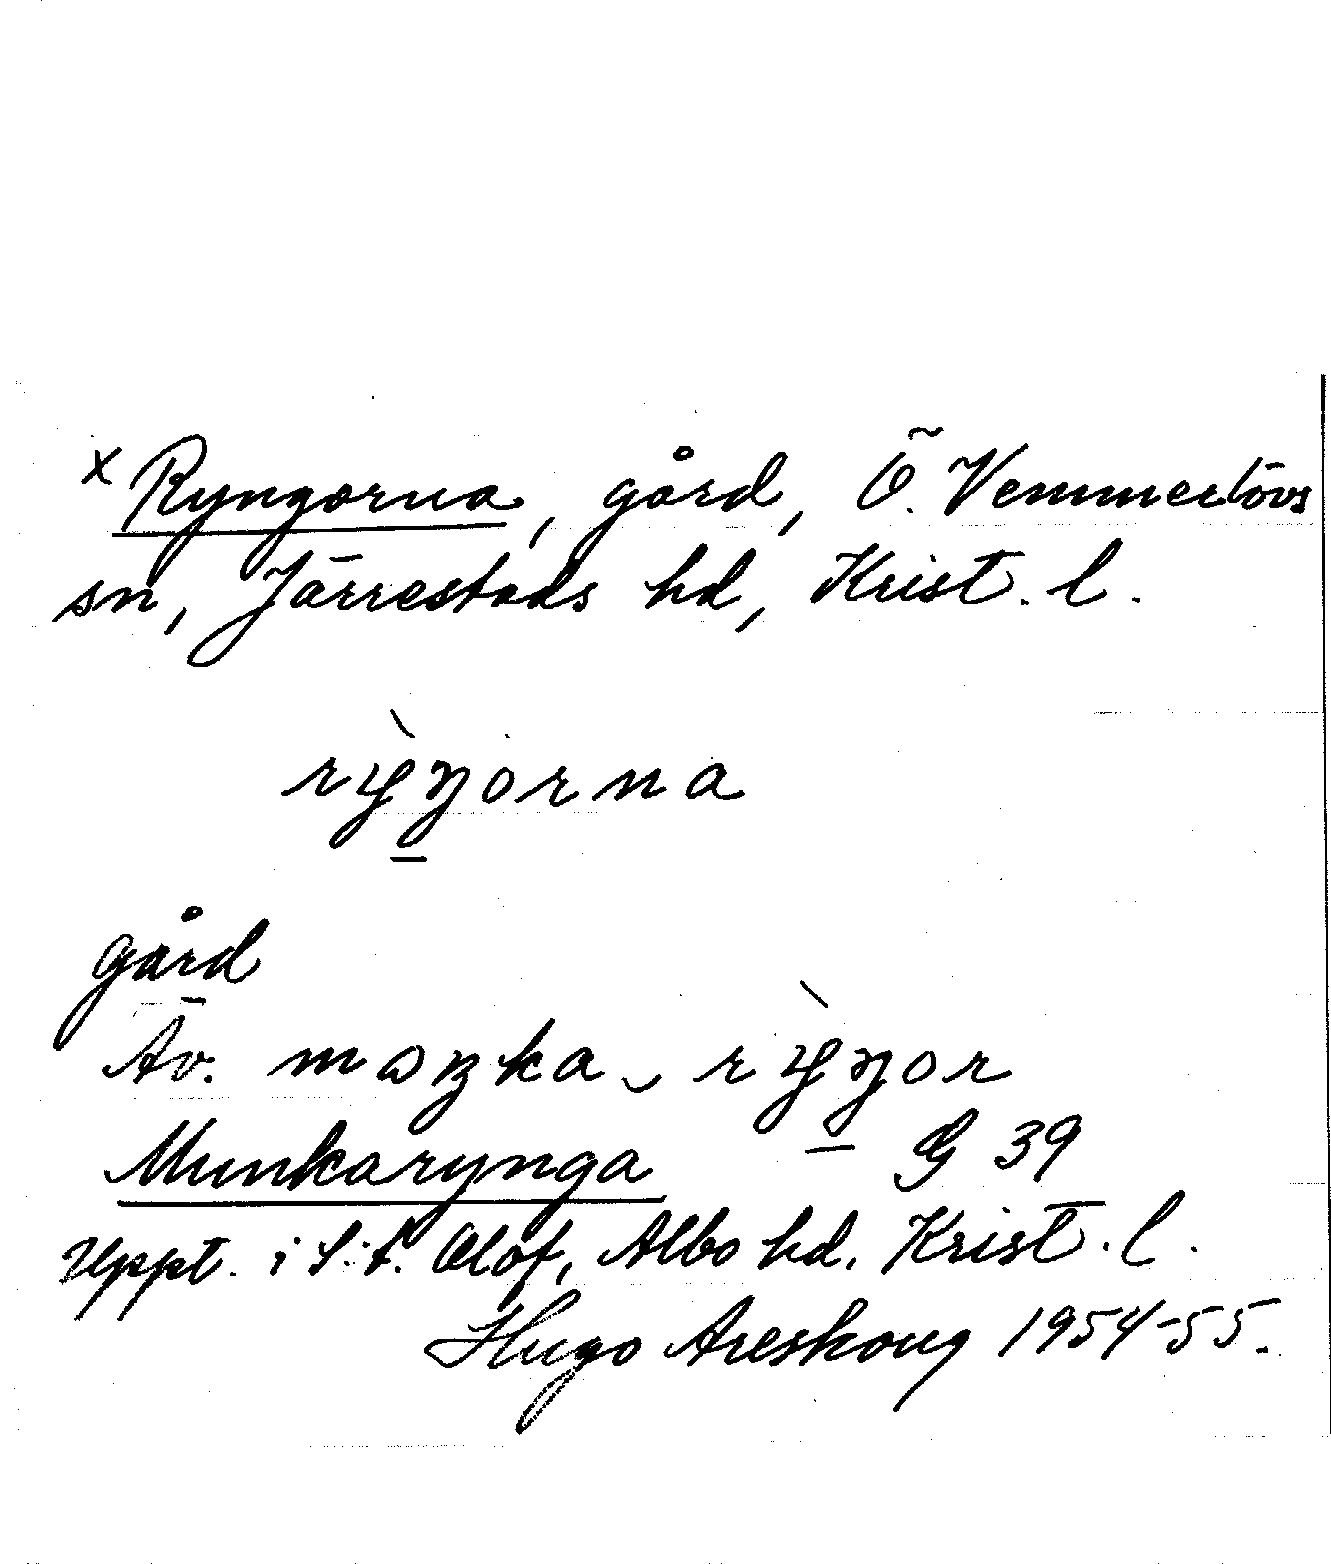 x Ryngorna, gård, Ö. Vemmerlövs
sn, Järrestads hd, Krist. l.
rỳŋorna
gård
Äv. maŋka rỳŋor
Munkarynga G 39
Uppt. i S:t. Olof, Albo hd. Krist. l.
Hugo Areskoug 1954-55.